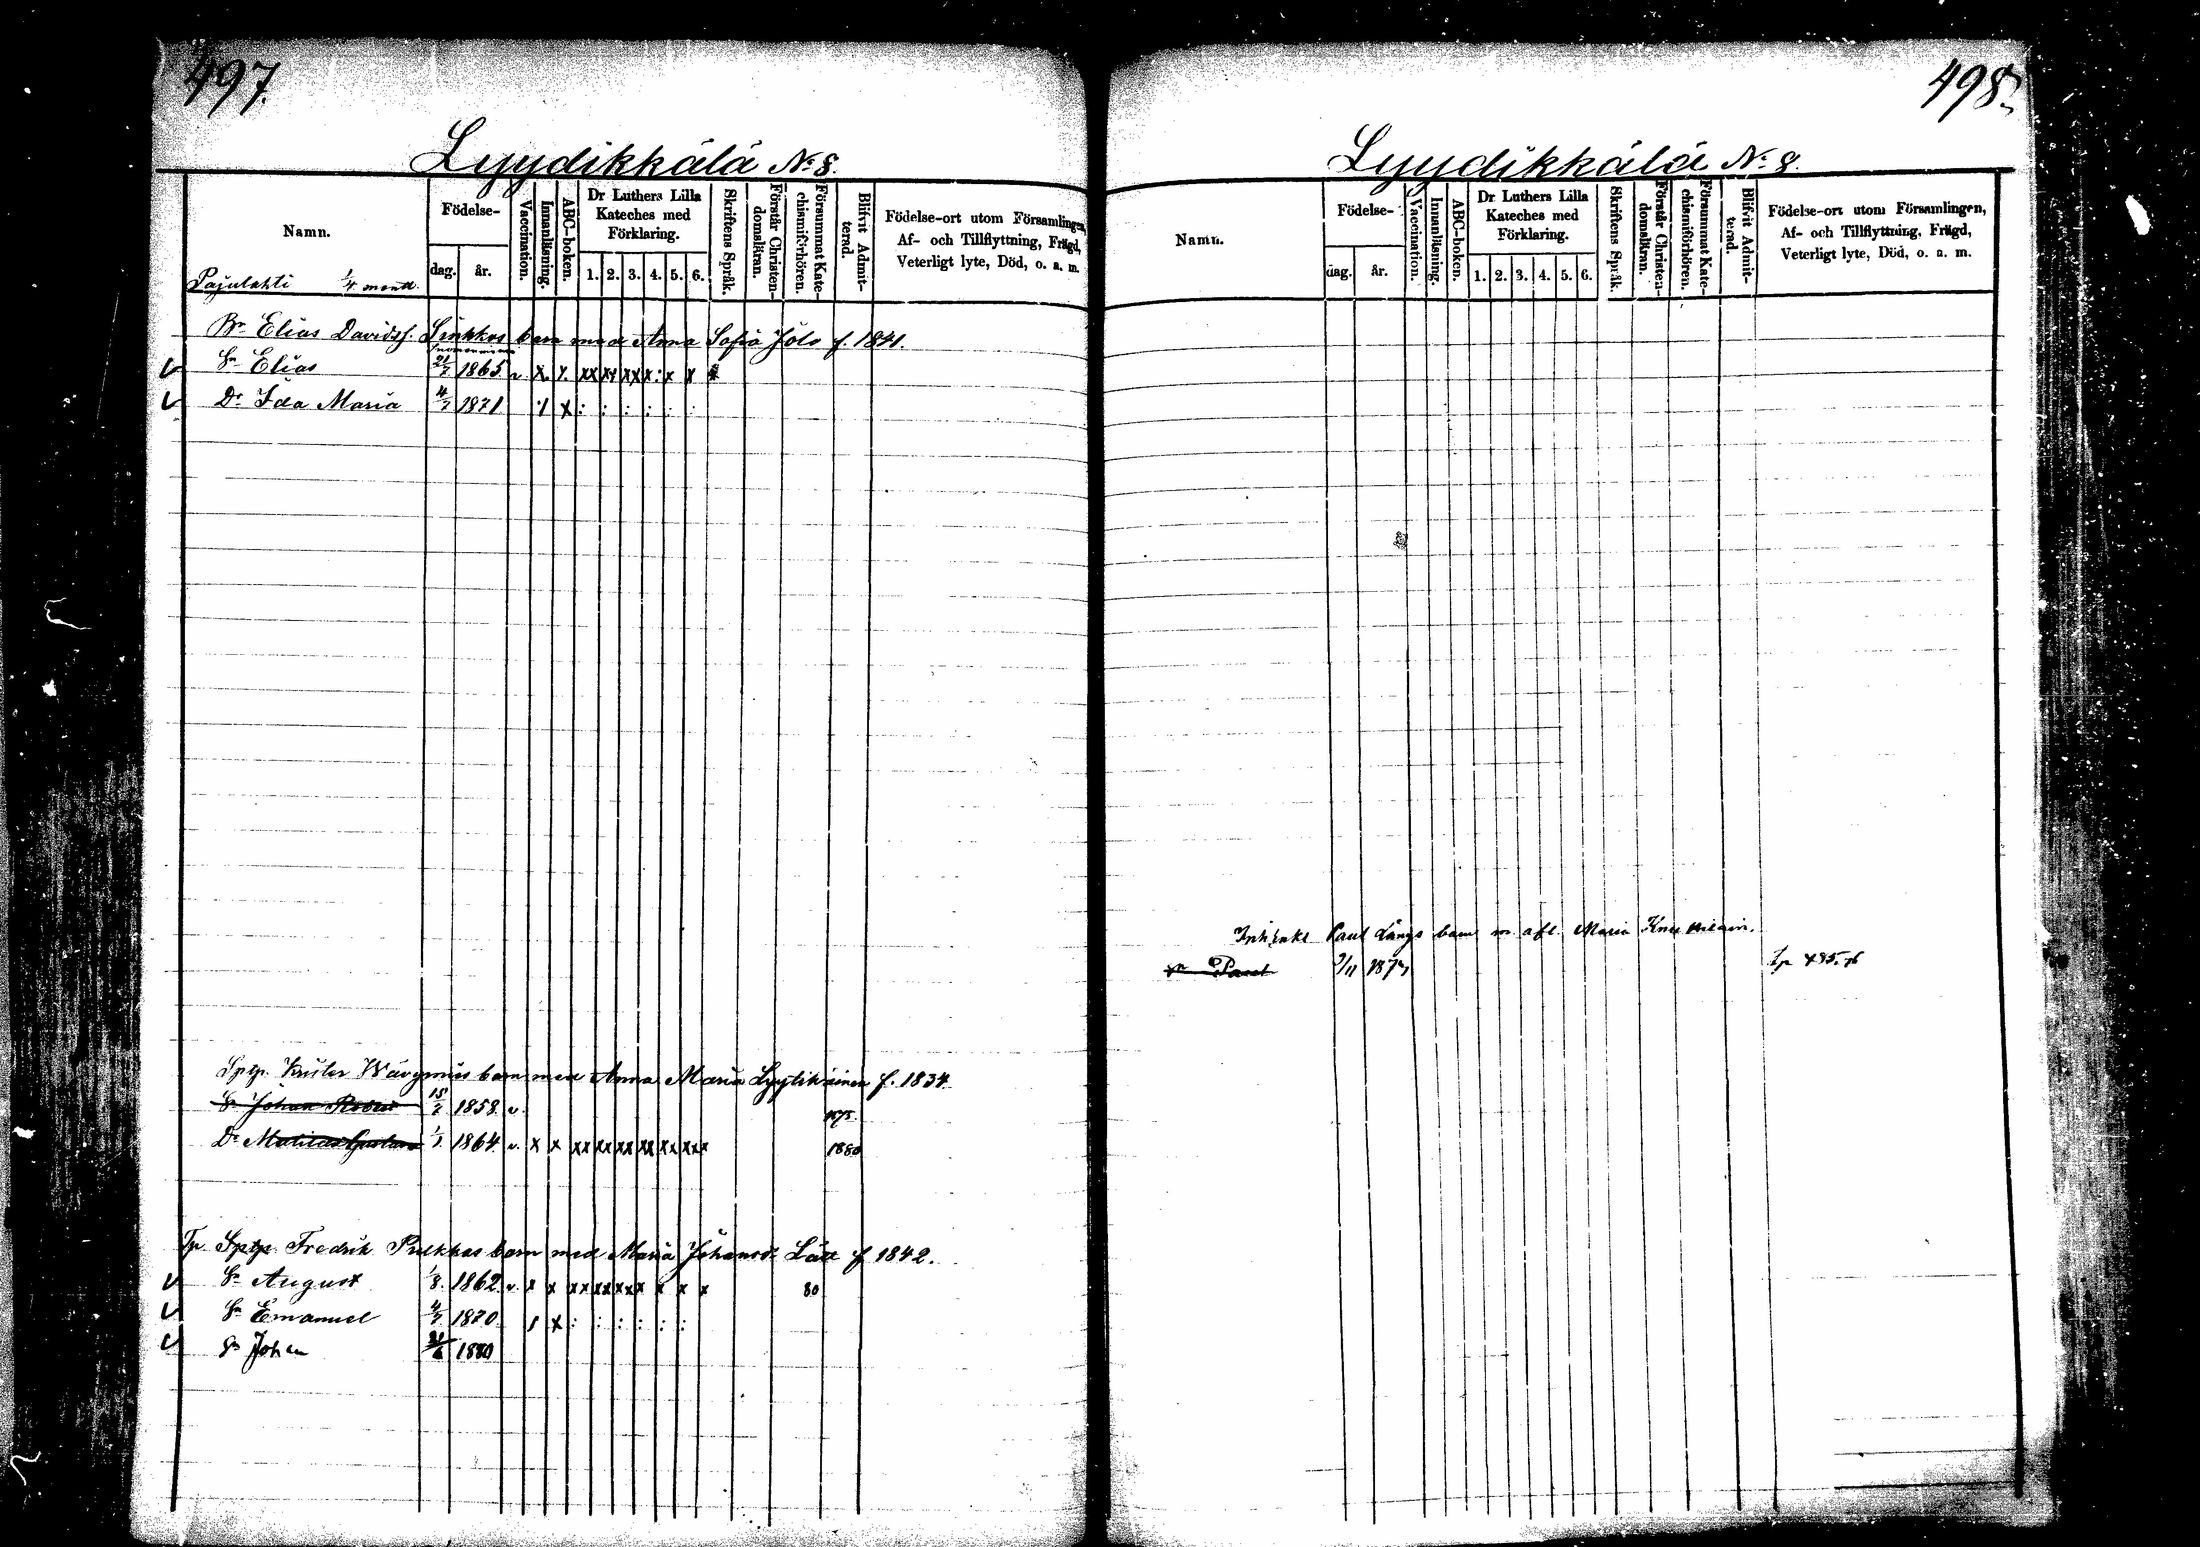 497.
Lyydikkälä No 8.
Namn.
Födelse-
dag.
år.
Vaccination.
Innanläsning.
ABC-boken.
Dr Luthers Lilla Kateches med Förklaring.
1. 2. 3. 4. 5. 6.
Skriftens Språk.
Förstår Christendomsläran.
Försummat Katechismiförhören.
Blifvit Admitterad.
Födelse-ort utom Församlingen,
Af- och Tillflyttning, Frägd,
Veterligt lyte, Död, o. a. m.
Pajulahti 1/4 mantl.
Bn Elias Davidsf. Sinkkos barn med Anna Sofia Jölo f. 1841.
Sn Elias 1865 v x x xx xx xx x: x x x
Dr Ida Maria 4/7 1871 x : : : : : :
Sptp. Wärgmüs barn med Anna Maria Lyytikäinen f. 1834
Sn Johan 15/2 1858 v. 1875.
Dr Matilda Gustava 1/1 1864 v. x x xx xx xx xx xx xxx 1880
Tp. Sptp. Fredrik Pulkkas barn med Maria Johansdr Lätt f 1842.
Sn August 1/8 1862 v. x x xx xx xx x x x x 80
Sn Emanuel 4/7 1870 x : : : : : :
Sn Johan 1880
498.
Lyydikkälä No 8.
Namn.
Födelse-
dag.
år.
Vaccination.
Innanläsning.
ABC-boken.
Dr Luthers Lilla Kateches med Förklaring.
1. 2. 3. 4. 5. 6.
Skriftens Språk.
Förstår Christendomsläran.
Försummat Katechismiförhören.
Blifvit Admitterad.
Födelse-ort utom Församlingen,
Af- och Tillflyttning, Frägd,
Veterligt lyte, Död, o. a. m.
Paul Längs barn m. afl. Maria
Sn Paul 9/11 tp 485.76